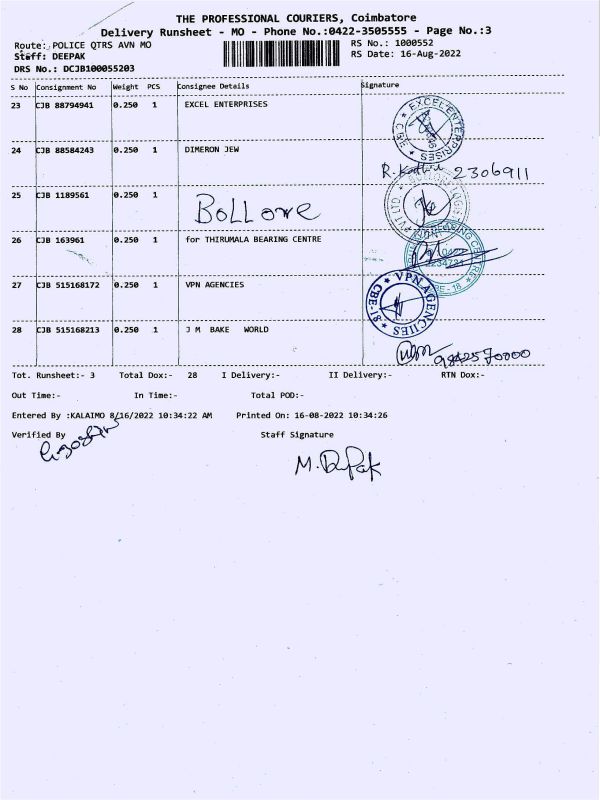 THE PROFESSIONAL COURIERS, Coimbatore
Delivery Runsheet - MO - Phone No.:0422-3505555 - Page No.:3
Route: POLICE QTRS AVN MO
RS No.: 1000552
Staff: DEEPAK
RS Date: 16-Aug-2022
DRS No.: DCJB100055203
S No Consignment No Weight PCS Consignee Details Signature
23 CJB 88794941 0.250 1 EXCEL ENTERPRISES
EXCEL ENTERPRISES * CBE *
24 CJB 88584243 0.250 1 DIMERON JEW
2306911
25 CJB 1189561 0.250 1 BOLLORE
PVT LTD.
26 CJB 163961 0.250 1 for THIRUMALA BEARING CENTRE
BEARING CENTRE
27 CJB 515168172 0.250 1 VPN AGENCIES
* VPN AGENCIES * CBE-18
28 CJB 515168213 0.250 1 J M BAKE WORLD
9842570000
Tot. Runsheet:- 3 Total Dox:- 28 I Delivery:- II Delivery:- RTN Dox:-
Out Time:- In Time:- Total POD:-
Entered By :KALAIMO 8/16/2022 10:34:22 AM Printed On: 16-08-2022 10:34:26
Verified By Staff Signature